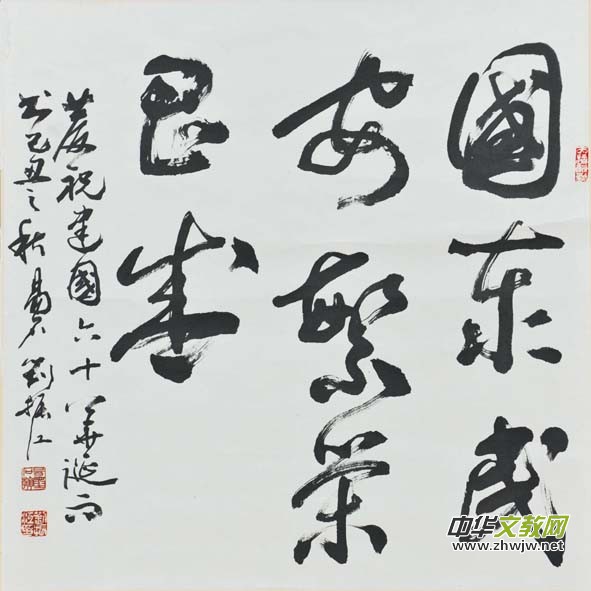 國泰民
安繁荣
昌盛
慶祝建國六十華誕而
书己丑之秋 劉振江
中华文教网
www.zhwjw.net